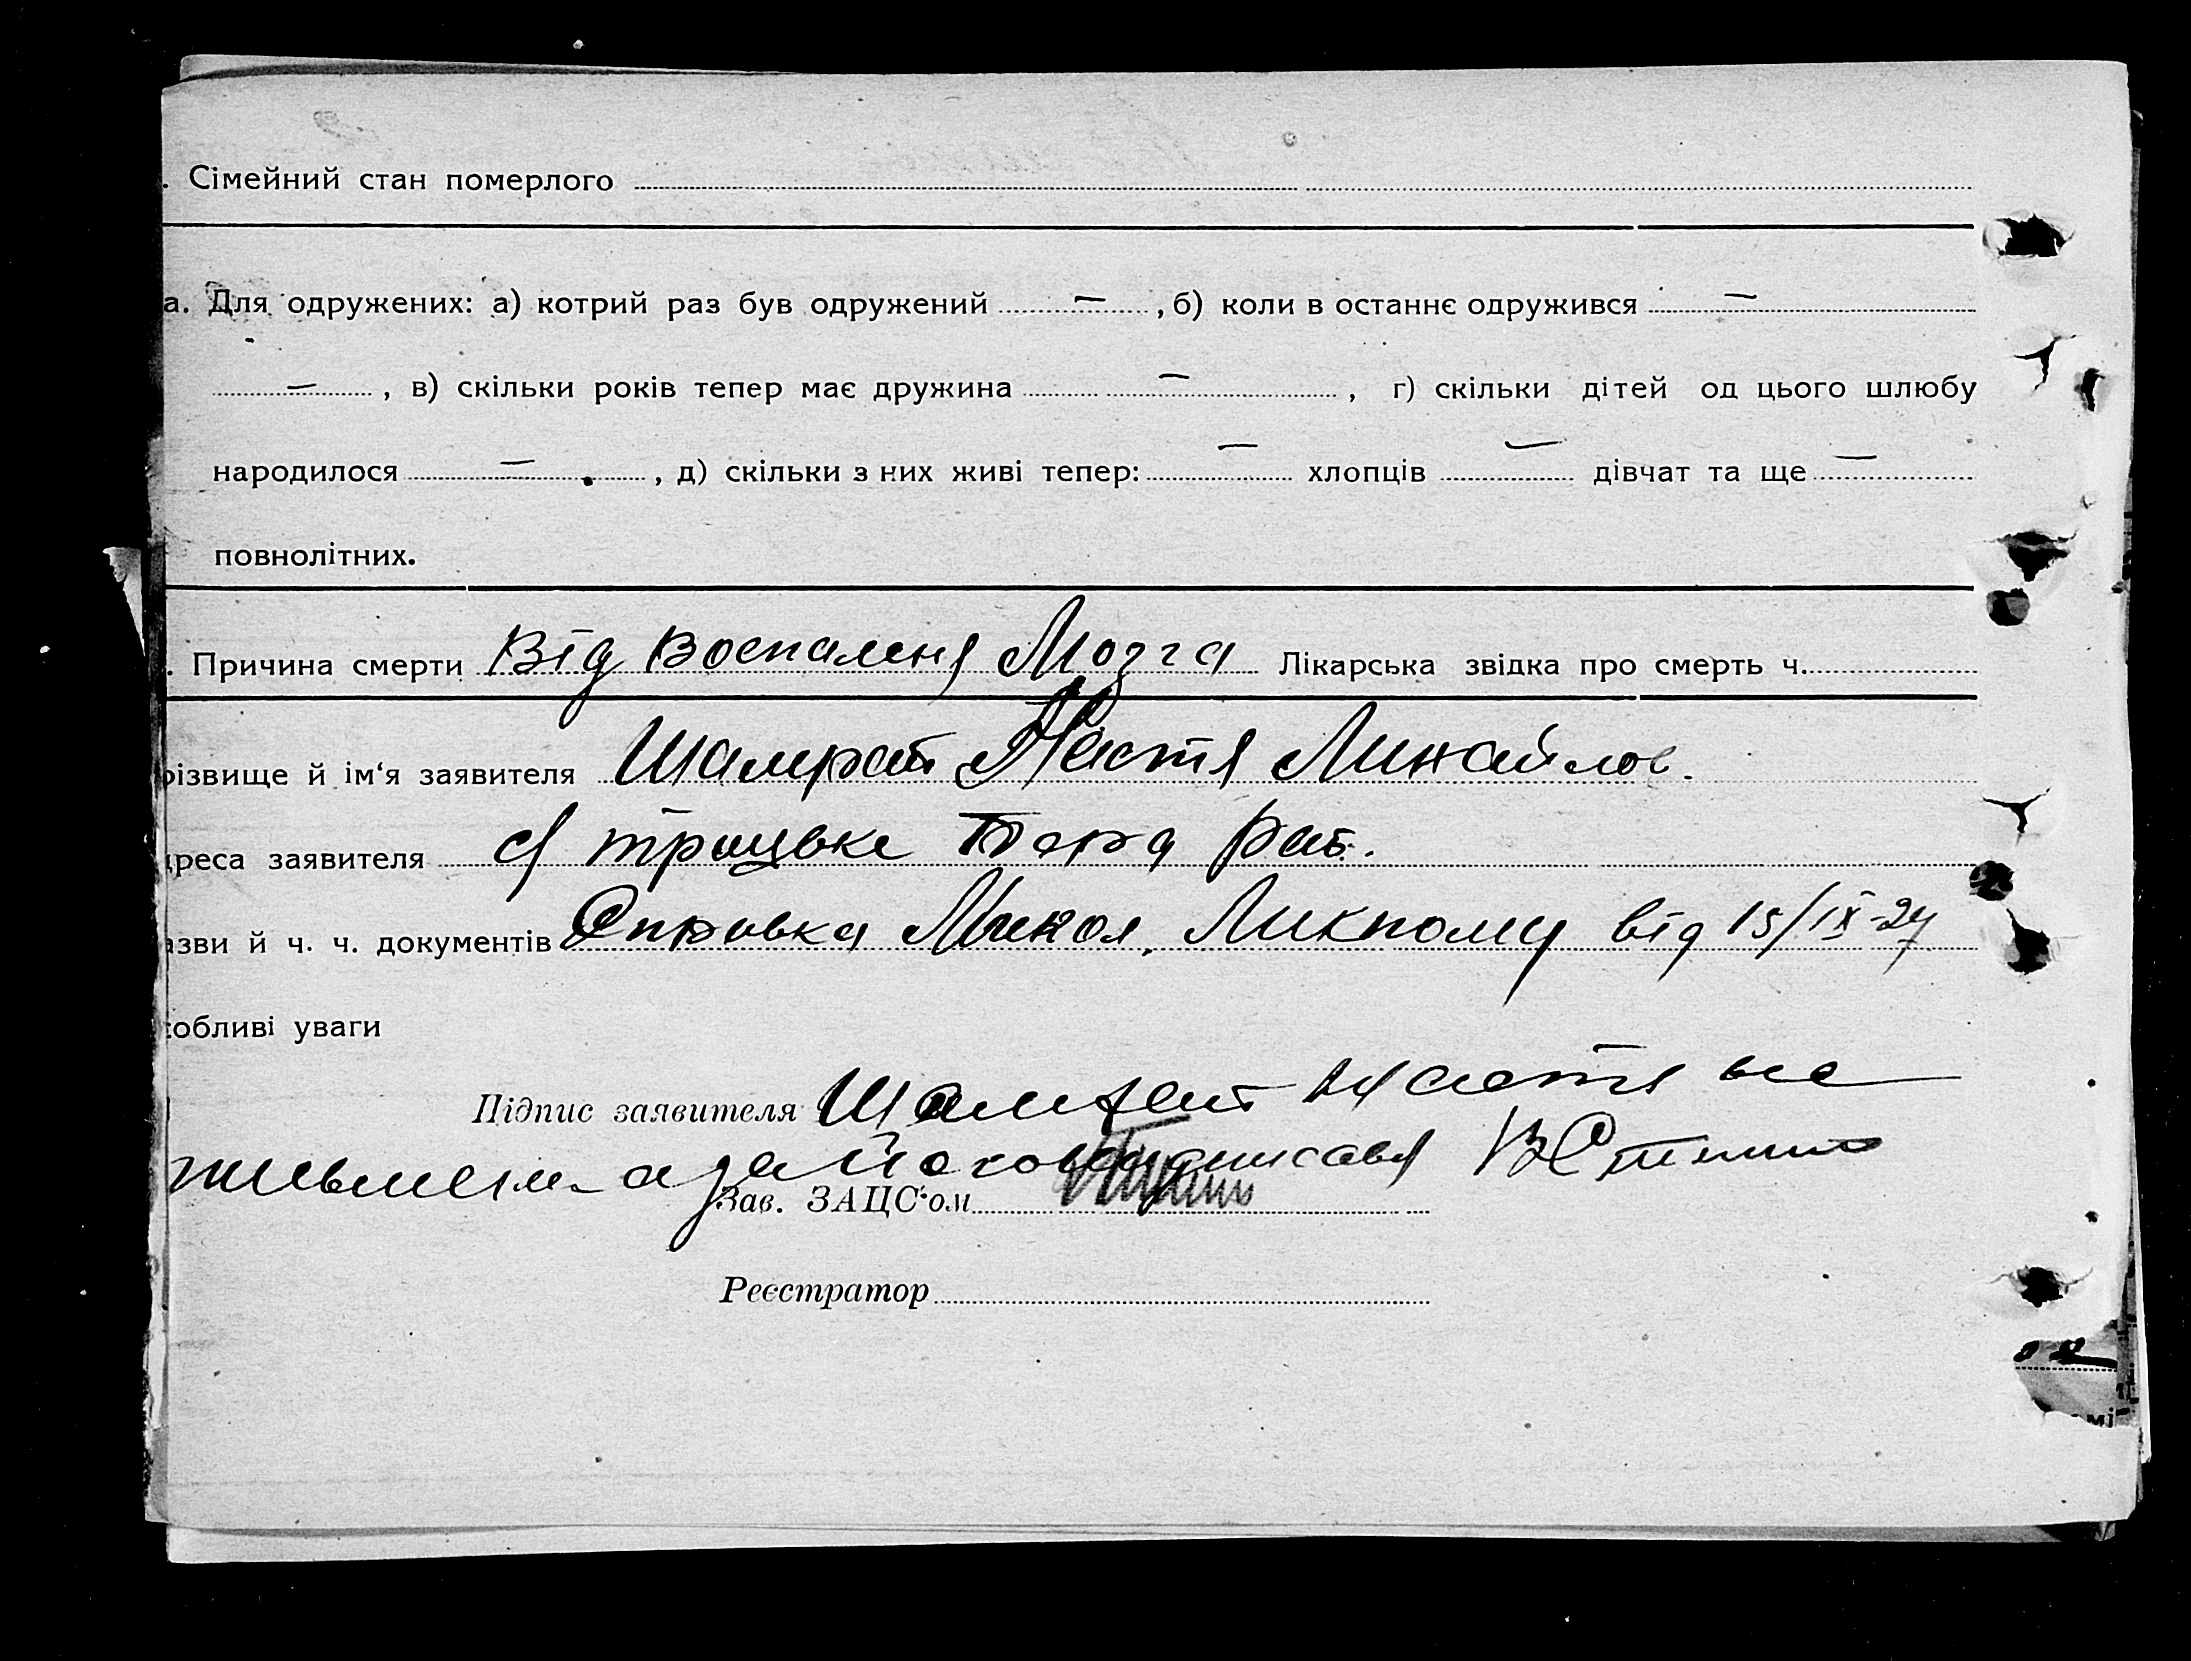 . Сімейний стан померлого
а. Для одружених: а) котрий раз був одружений — , б) коли в останнє одружився —
— , в) скільки років тепер має дружина — , г) скільки дітей од цього шлюбу
народилося — , д) скільки з них живі тепер: — хлопців — дівчат та ще —
повнолітних.
. Причина смерти Від Воспаленя Мозга Лікарська звідка про смерть ч.
різвище й ім'я заявителя Шамрай Настя Михайлов.
дреса заявителя с/ троцьке рай.
азви й ч. ч. документів Справка Микол. Ликпому від 15/IX-27
собливі уваги
Підпис заявителя Шамрай Настя не
письмена а за йої
Зав. ЗАЦС'ом
Реєстратор
мі